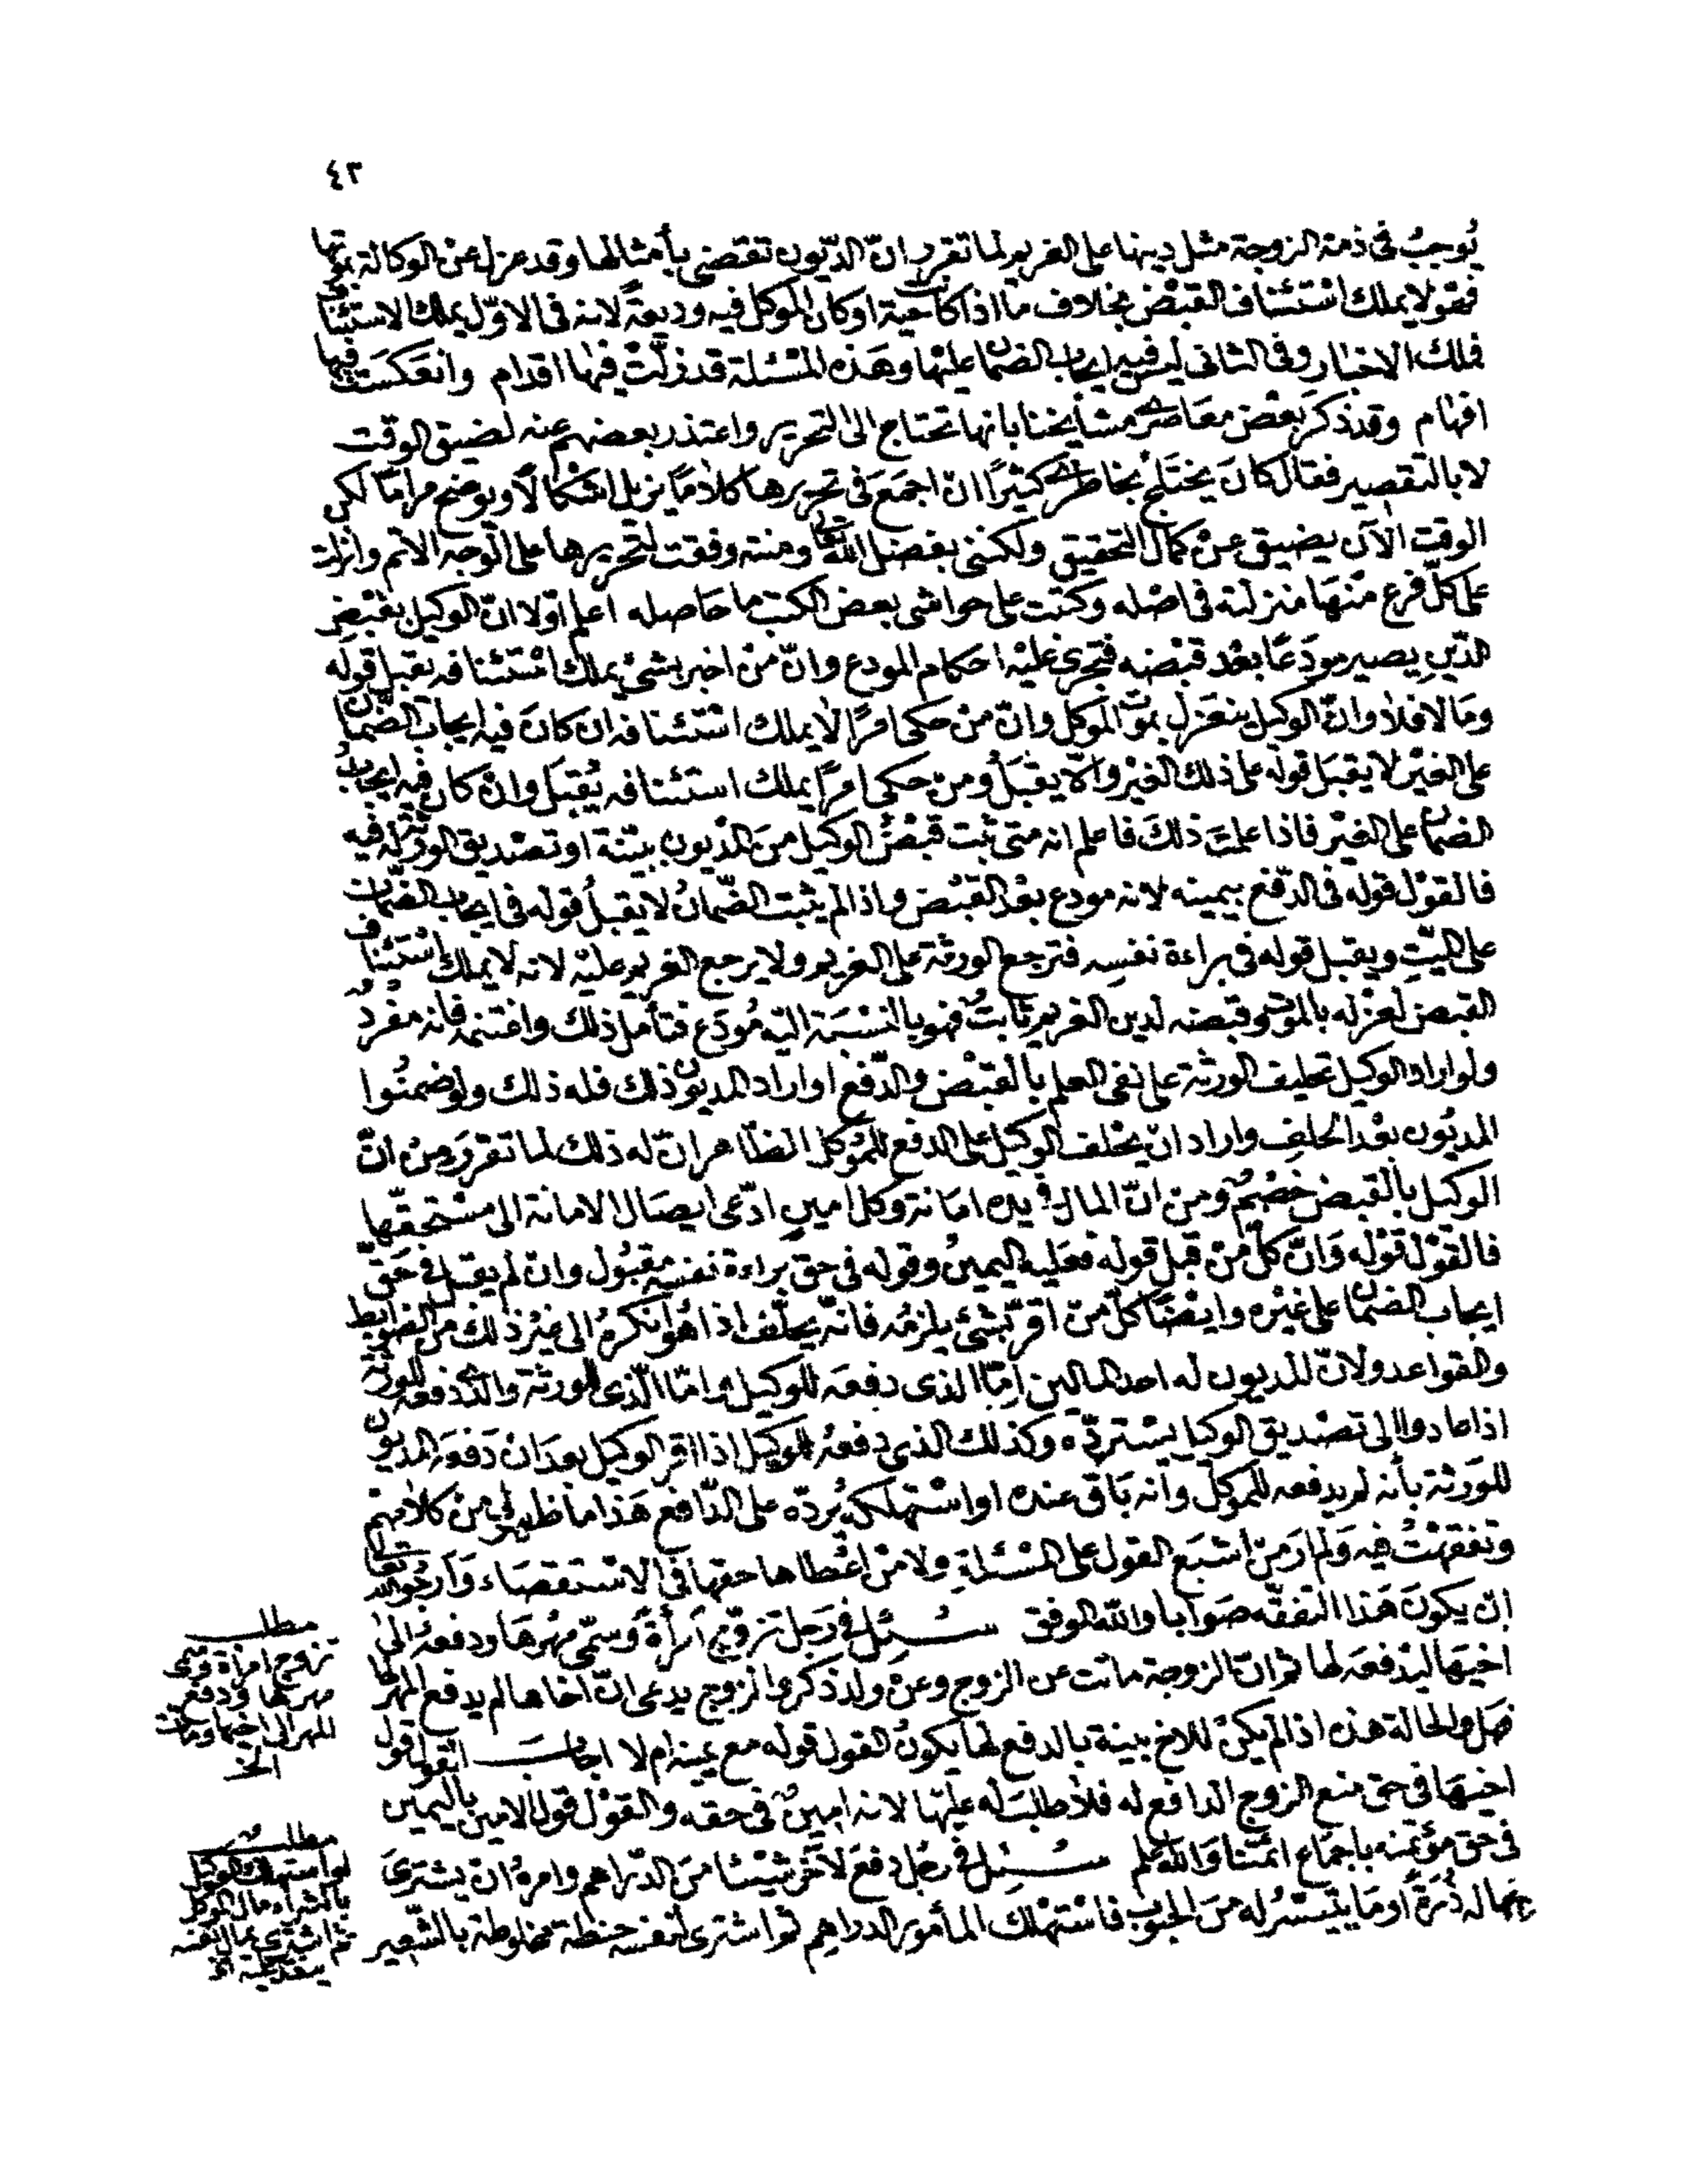 ٤٣
يُوجبُ في ذمة الزوجة مثل دينها على الغريم لما تقرر انّ الدّيون تقضى بأمثالها وقد عزل عن الوكالة بموتها
فهو لا يملك استئناف القبض بخلاف ما اذا كانت حية او كان الموكل فيه وديعةً لانه في الاوّل يملك الاستئناف
فملك الاخبار وفي الثاني ليس فيه ايجاب الضمان عليها وهذه المسئلة قد زلّت فيها اقدام وانعكست فيها
افهام وقد ذكر بعض معاصرى مشايخنا بانها تحتاج الى التحرير واعتذر بعضهم عنه لضيق الوقت
لا بالتقصير فقال كانَ يختلج بخاطرى كثيرًا ان اجمعَ في تحريرها كلامًا يزيل اشكالًا ويوضح مرامًا لكن
الوقت الآن يضيق عن كمال التحقيق ولكننى بفضل الله تعالى ومنته وفقت لتحريرها على الوجه الاتم وانزلت
على كلّ فرع منها منزلته في اصله وكتبت على حواشى بعض الكتب ما حاصله اعلم اوّلا انّ الوكيل بقبض
الدّين يصير مودَعًا بعْد قبضه فتجرى عليْه احكام المودع وانّ منْ اخبر بشئ يملك استئنافه يقبل قوله
وما لا فلا وانّ الوكيل ينعزل بموت الموكل وانّ من حكى امرًا لا يملك استئنافه ان كانَ فيه ايجاب الضّمان
على الغيْر لا يقبل قوله على ذلك الغيْر والّا يقْبَل ومن حكى امرًا يملك استئنافه يُقبَل وان كان فيه ايجابُ
الضمان على الغيْر فاذا علمتَ ذلكَ فاعلم انه متى ثبت قبْضُ الوكيل منَ المديون ببيّنة او تصديق الورثة له فيه
فالقوْل قوله في الدّفع بيمينه لانه مودع بعْد القبْض واذا لم يثبت الضّمانُ لا يقبلُ قوله في ايجاب الضّمان
على الميّتِ ويقبل قوله في براءة نفسِه فترجع الورثة على الغريم ولا يرجع الغريم عليْه لانه لا يملك استئناف
القبض لعزله بالموت وقبضه لدين الغريم ثابتٌ فهو بالنسْبَة اليْه مُودَع فتأمل ذلك واغتنمه فانه مفردٌ
ولو اراد الوكيل تحليف الورثة على نفى العلم بالقبْض والدّفع او اراد المديون ذلك فله ذلك ولو ضمنُوا
المديُون بعْد الحلف واراد انْ يحْلف الوكيل على الدفع للموكل الظّاهر انّ له ذلك لما تقرّرَ منْ انّ
الوكيل بالقبض خصْمٌ ومن انّ المال في يده امانة وكل امينٍ ادّعى ايصَال الامانة الى مسْتحقّها
فالقوْل قوْله وانّ كلّ منْ قبل قوله فعَليه اليمينُ وقوله في حق براءة نفسِه مقبُول وان لم يقبل في حَق
ايجاب الضمان على غيْره وايضًا كلّ منْ اقرّ بشئ يلزمُه فانّه يحلّف اذا هو انكرهُ الى غيْر ذلك من الضوابط
والقواعد ولانّ للمديون له احد المالين امّا الذى دفعه للوكيل وامّا الّذى للورثة والذى دفعه للورثة
اذا عادوا الى تصْديق الوكيل يسْتردّه وكذلك الذى دفعهُ للوكيل اذا اقر الوكيل بعد انْ دَفعَ المديون
للورثة بأنه لم يدفعه للموكل وانه باق عنده او استهلكه يُردّه على الدّافع هَذا ما ظهر لي منْ كلامهم
وتفقهْتُ فيه ولم ارَ منْ اشبَع القول على المسْئلةِ ولا منْ اعْطاها حقها في الاسْتقصَاء وارجُو الله تعالى
ان يكونَ هَذا التفقّه صَوابا والله الموفق سُئِل في رَجل تزوّج امرأةً وسمّى مهْرهَا ودفعهُ الى
اخيْهَا ليدْفعَه لها ثم انّ الزوجة ماتت عن الزوج وعنْ ولد ذكر والزوج يدعى انّ اخاها لم يدفع المهر لها
فهل والحالة هذه اذا لم يكنْ للاخ بينة بالدفع لها يكونُ القول قوله مع يمينه ام لا اجابَ القول قول
اخيْهَا في حق منع الزوج الدافع له فلا طلبَ له عليْها لانه امينٌ في حقه والقوْل قول الامين باليمين
في حق مؤتمنه باجمَاع ائمّتنا والله اعلم سُئِل في رجُل دفعَ لآخر شيْئا منَ الدّراهم وامرهُ ان يشترىَ
بها له ذُرَةً او ما يتيسّرُ له منَ الحبُوب فاسْتهْلك المأمور الدراهِم ثم اشترى لنفسه حنطة مخلوطة بالشّعير
مطلب
تزوج امرأة وسمى
مهرها ودفع
المهر الى اخيها وماتت
الخ
مطلب
لو استهلك الوكيل
بالشراء مال الموكل
ثم اشترى بمال نفسه
ينفذ عليه الخ